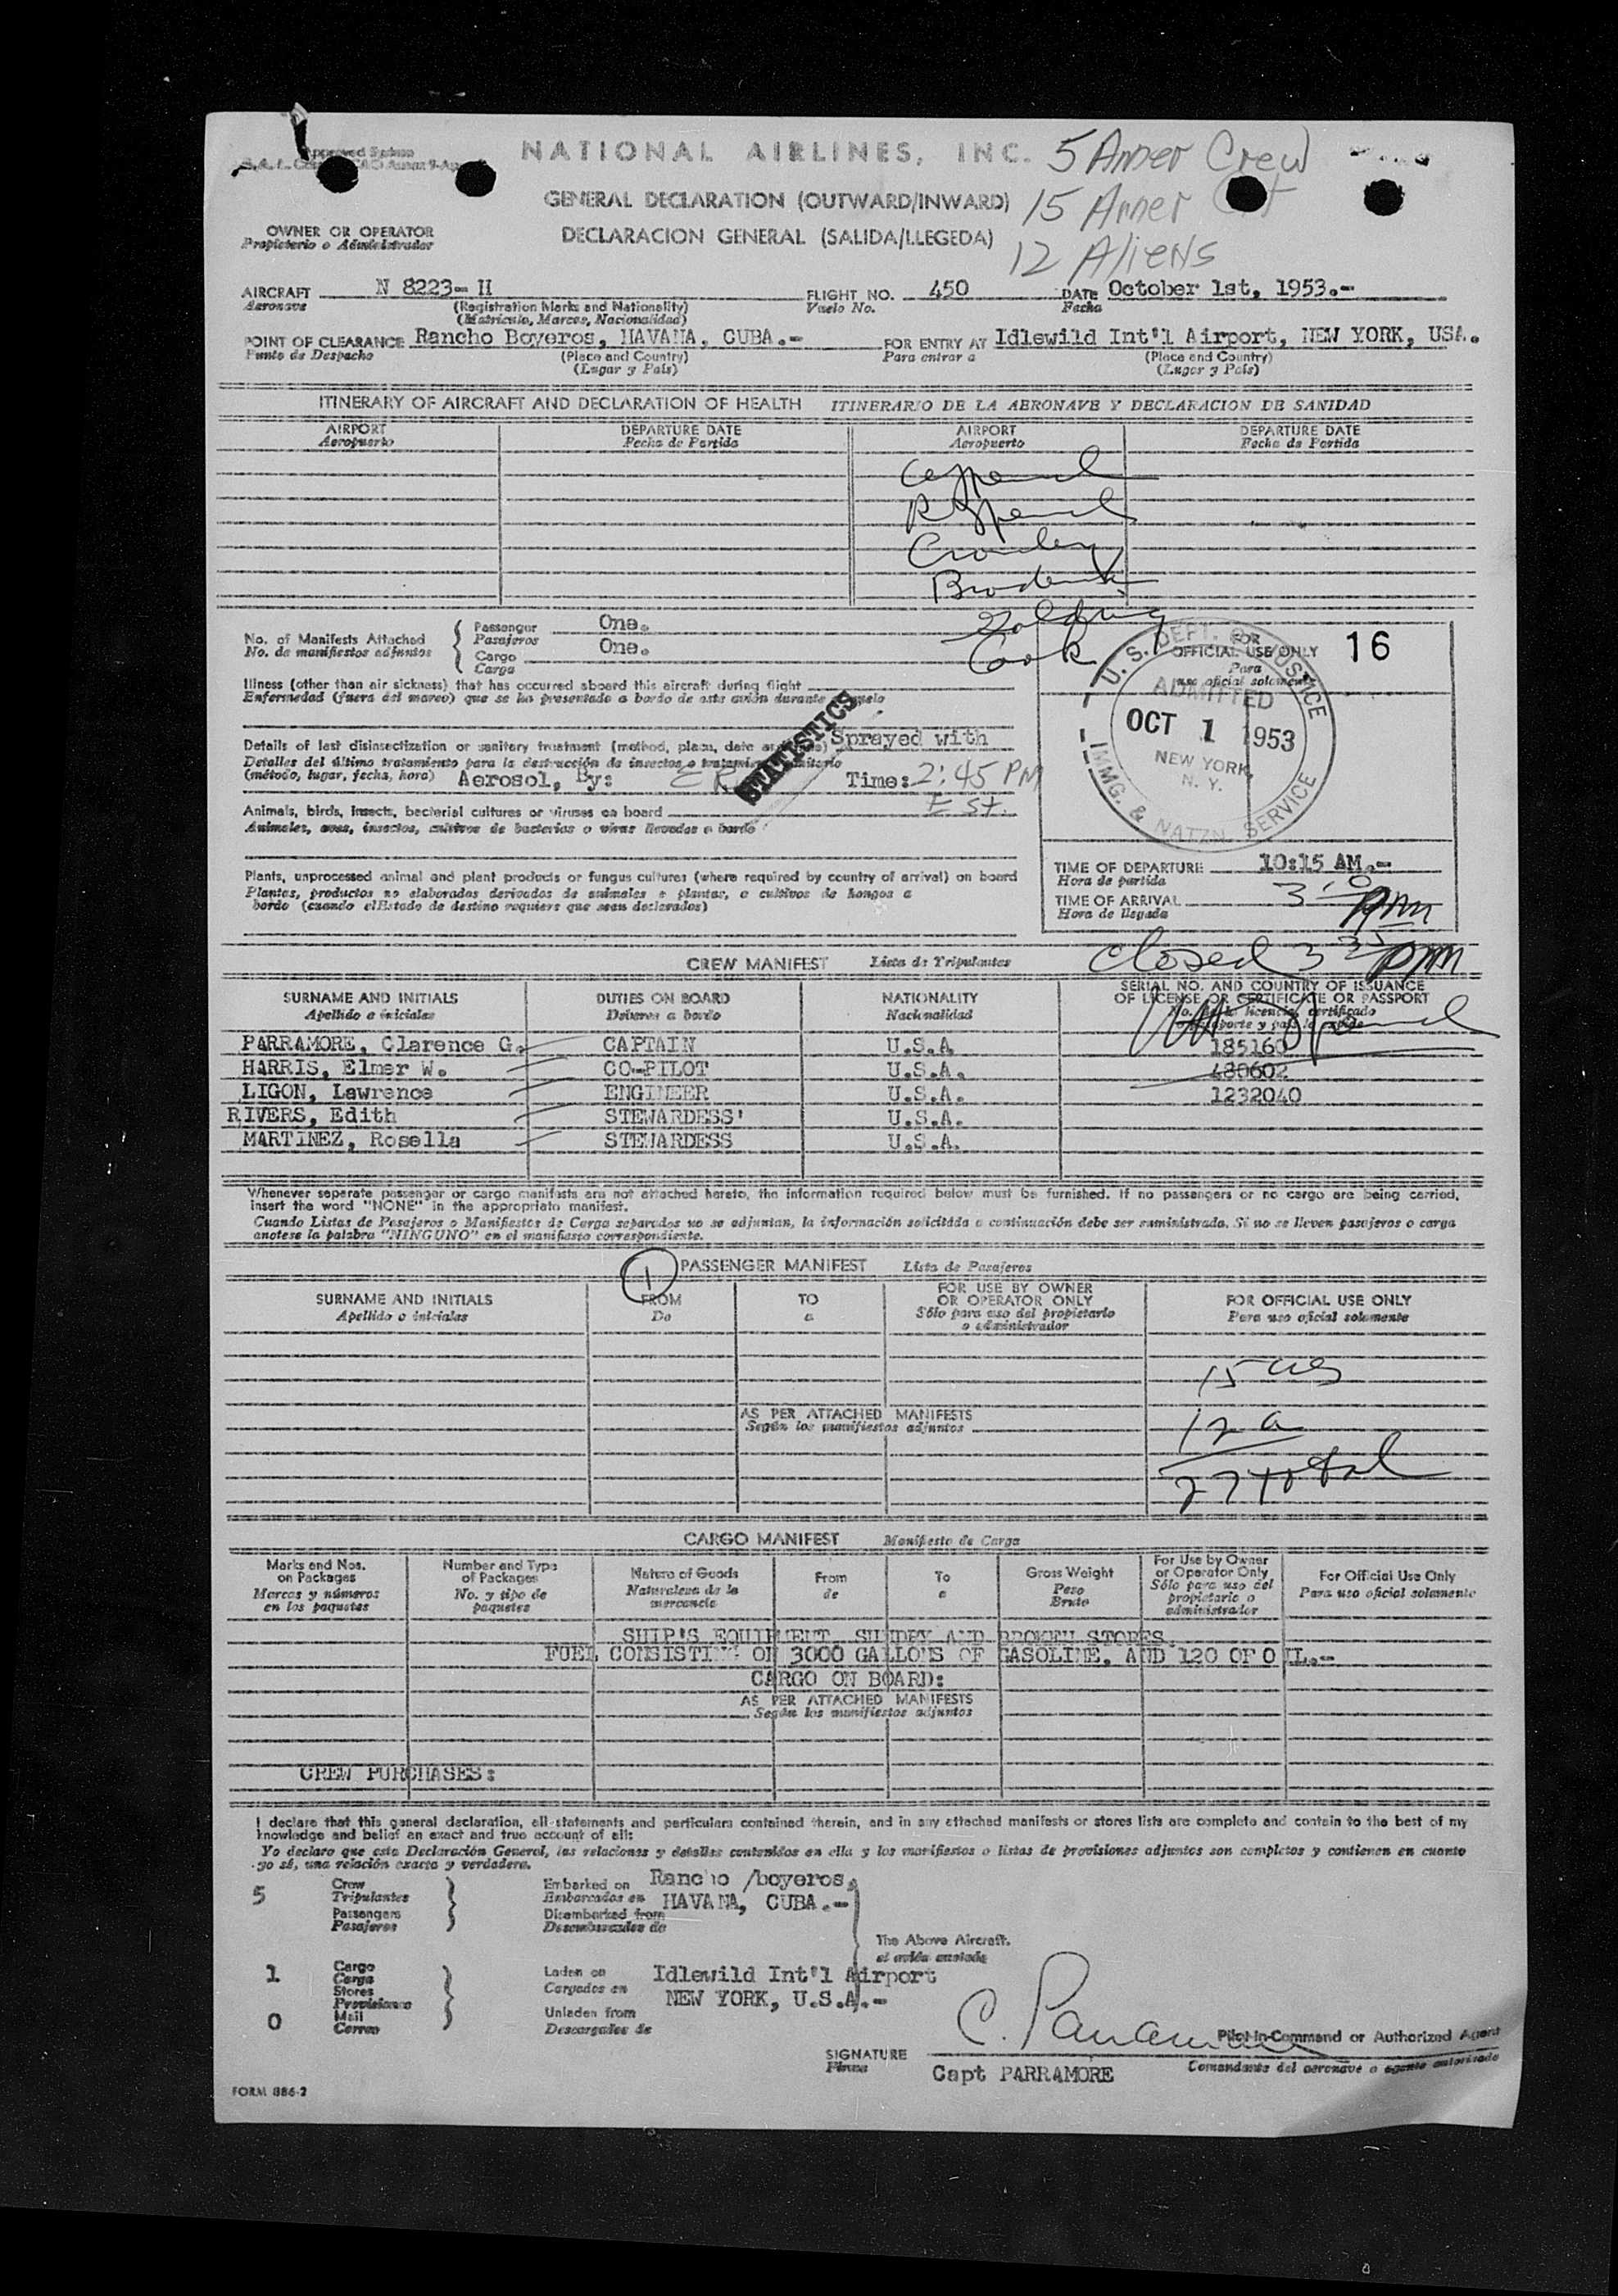 NATIONAL AIRLINES, INC.
5 Amer Crew
GENERAL DECLARATION (OUTWARD/INWARD)
15 Amer
DECLARACION GENERAL (SALIDA/LLEGEDA)
12 Aliens
OWNER OR OPERATOR
Propietario o Administrador
AIRCRAFT N 8223- H FLIGHT NO. 450 DATE October 1st, 1953.-
Aeronave (Registration Marks and Nationality) Vuelo No. Fecha
(Matricula, Marcas, Nacionalidad)
POINT OF CLEARANCE Rancho Boyeros, HAVANA, CUBA.- FOR ENTRY AT Idlewild Int'l Airport, NEW YORK, USA.
Punto de Despacho (Place and Country) Para entrar a (Place and Country)
(Lugar y País) (Lugar y País)
ITINERARY OF AIRCRAFT AND DECLARATION OF HEALTH ITINERARIO DE LA AERONAVE Y DECLARACION DE SANIDAD
AIRPORT DEPARTURE DATE AIRPORT DEPARTURE DATE
Aeropuerto Fecha de Partida Aeropuerto Fecha de Partida
Crowley
Cook
No. of Manifests Attached
No. de manifiestos adjuntos
Passenger One.
Pasajeros
Cargo One.
Carga
FOR
OFFICIAL USE ONLY 16
Para
uso oficial solamente
U. S. DEPT. OF JUSTICE
ADMITTED
OCT 1 1953
NEW YORK,
N. Y.
IMMG. & NATZN. SERVICE
Illness (other than air sickness) that has occurred aboard this aircraft during flight
Enfermedad (fuera del mareo) que se ha presentado a bordo de este avión durante el vuelo
STATISTICS
Details of last disinsectization or sanitary treatment (method, place, date and time) Sprayed with
Detalles del último tratamiento para la destrucción de insectos o tratamiento sanitario
(método, lugar, fecha, hora) Aerosol, By: Time: 2:45 PM
EST.
Animals, birds, insects, bacterial cultures or viruses on board
Animales, aves, insectos, cultivos de bacterias o virus llevados a bordo
Plants, unprocessed animal and plant products or fungus cultures (where required by country of arrival) on board
Plantas, productos no elaborados derivados de animales e plantas, o cultivos de hongos a
bordo (cuando el Estado de destino requiere que sean declarados)
TIME OF DEPARTURE 10:15 AM.-
Hora de partida
TIME OF ARRIVAL pm
Hora de llegada
closed 3 35 pm
CREW MANIFEST Lista de Tripulantes
SURNAME AND INITIALS DUTIES ON BOARD NATIONALITY SERIAL NO. AND COUNTRY OF ISSUANCE
OF LICENSE OR CERTIFICATE OR PASSPORT
Apellido e iniciales Deberes a bordo Nacionalidad
PARRAMORE, Clarence G. CAPTAIN U.S.A 185160
HARRIS, Elmer W. CO-PILOT U.S.A. 480602
LIGON, Lawrence ENGINEER U.S.A. 1232040
RIVERS, Edith STEWARDESS' U.S.A.
MARTINEZ, Rosella STEWARDESS U.S.A.
Whenever separate passenger or cargo manifests are not attached hereto, the information required below must be furnished. If no passengers or no cargo are being carried,
insert the word "NONE" in the appropriate manifest.
Cuando Listas de Pasajeros o Manifiestos de Carga separados no se adjuntan, la información solicitada a continuación debe ser suministrada. Si no se lleven pasajeros o carga
anotese la palabra "NINGUNO" en el manifiesto correspondiente.
1 PASSENGER MANIFEST Lista de Pasajeros
SURNAME AND INITIALS FROM TO FOR USE BY OWNER
OR OPERATOR ONLY FOR OFFICIAL USE ONLY
Apellido o iniciales De a Sólo para uso del propietario
o administrador Para uso oficial solamente
15
AS PER ATTACHED MANIFESTS
Según los manifiestos adjuntos
12 a
27 total
CARGO MANIFEST Manifiesto de Carga
Marks and Nos.
on Packages
Marcas y números
en los paquetes
Number and Type
of Packages
No. y tipo de
paquetes
Nature of Goods
Naturaleza de la
mercancia
From
de
To
a
Gross Weight
Peso
Bruto
For Use by Owner
or Operator Only
Sólo para uso del
propietario o
administrador
For Official Use Only
Para uso oficial solamente
SHIP'S EQUIPMENT, SUNDRY AND BROKEN STORES.
FUEL CONSISTING OF 3000 GALLONS OF GASOLINE, AND 120 OF OIL.-
CARGO ON BOARD:
AS PER ATTACHED MANIFESTS
Según los manifiestos adjuntos
CREW PURCHASES:
I declare that this general declaration, all statements and particulars contained therein, and in any attached manifests or stores lists are complete and contain to the best of my
knowledge and belief an exact and true account of all:
Yo declaro que esta Declaración General, las relaciones y detalles contenidos en ella y los manifiestos o listas de provisiones adjuntos son completos y contienen en cuanto
yo sé, una relación exacta y verdadera.
5 Crew
Tripulantes
Passengers
Pasajeros
Embarked on Rancho /boyeros,
Embarcados en HAVANA, CUBA.-
Disembarked from
Desembarcados de
The Above Aircraft.
el avión anotado
1 Cargo
Carga
Stores
Provisiones
0 Mail
Correo
Laden on Idlewild Int'l Airport
Cargados en NEW YORK, U.S.A.-
Unladen from
Descargados de
C. Parramore
Pilot-in-Command or Authorized Agent
SIGNATURE
Firma
Capt PARRAMORE Comandante del aeronave o agente autorizado
FORM 886-2